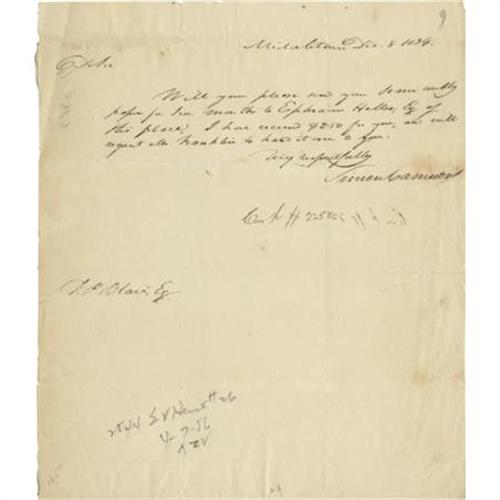 9
Middletown Dec. 8 1834.
D Sir
Will you please send your semi weekly
paper for six months to Ephraim Heller, Esq of
this place; I have received $250 for you, and will
request Mr. Franklin to hand it over to you.
Very respectfully
Simon Cameron
F. P. Blair, Esq
2544
4-7-56